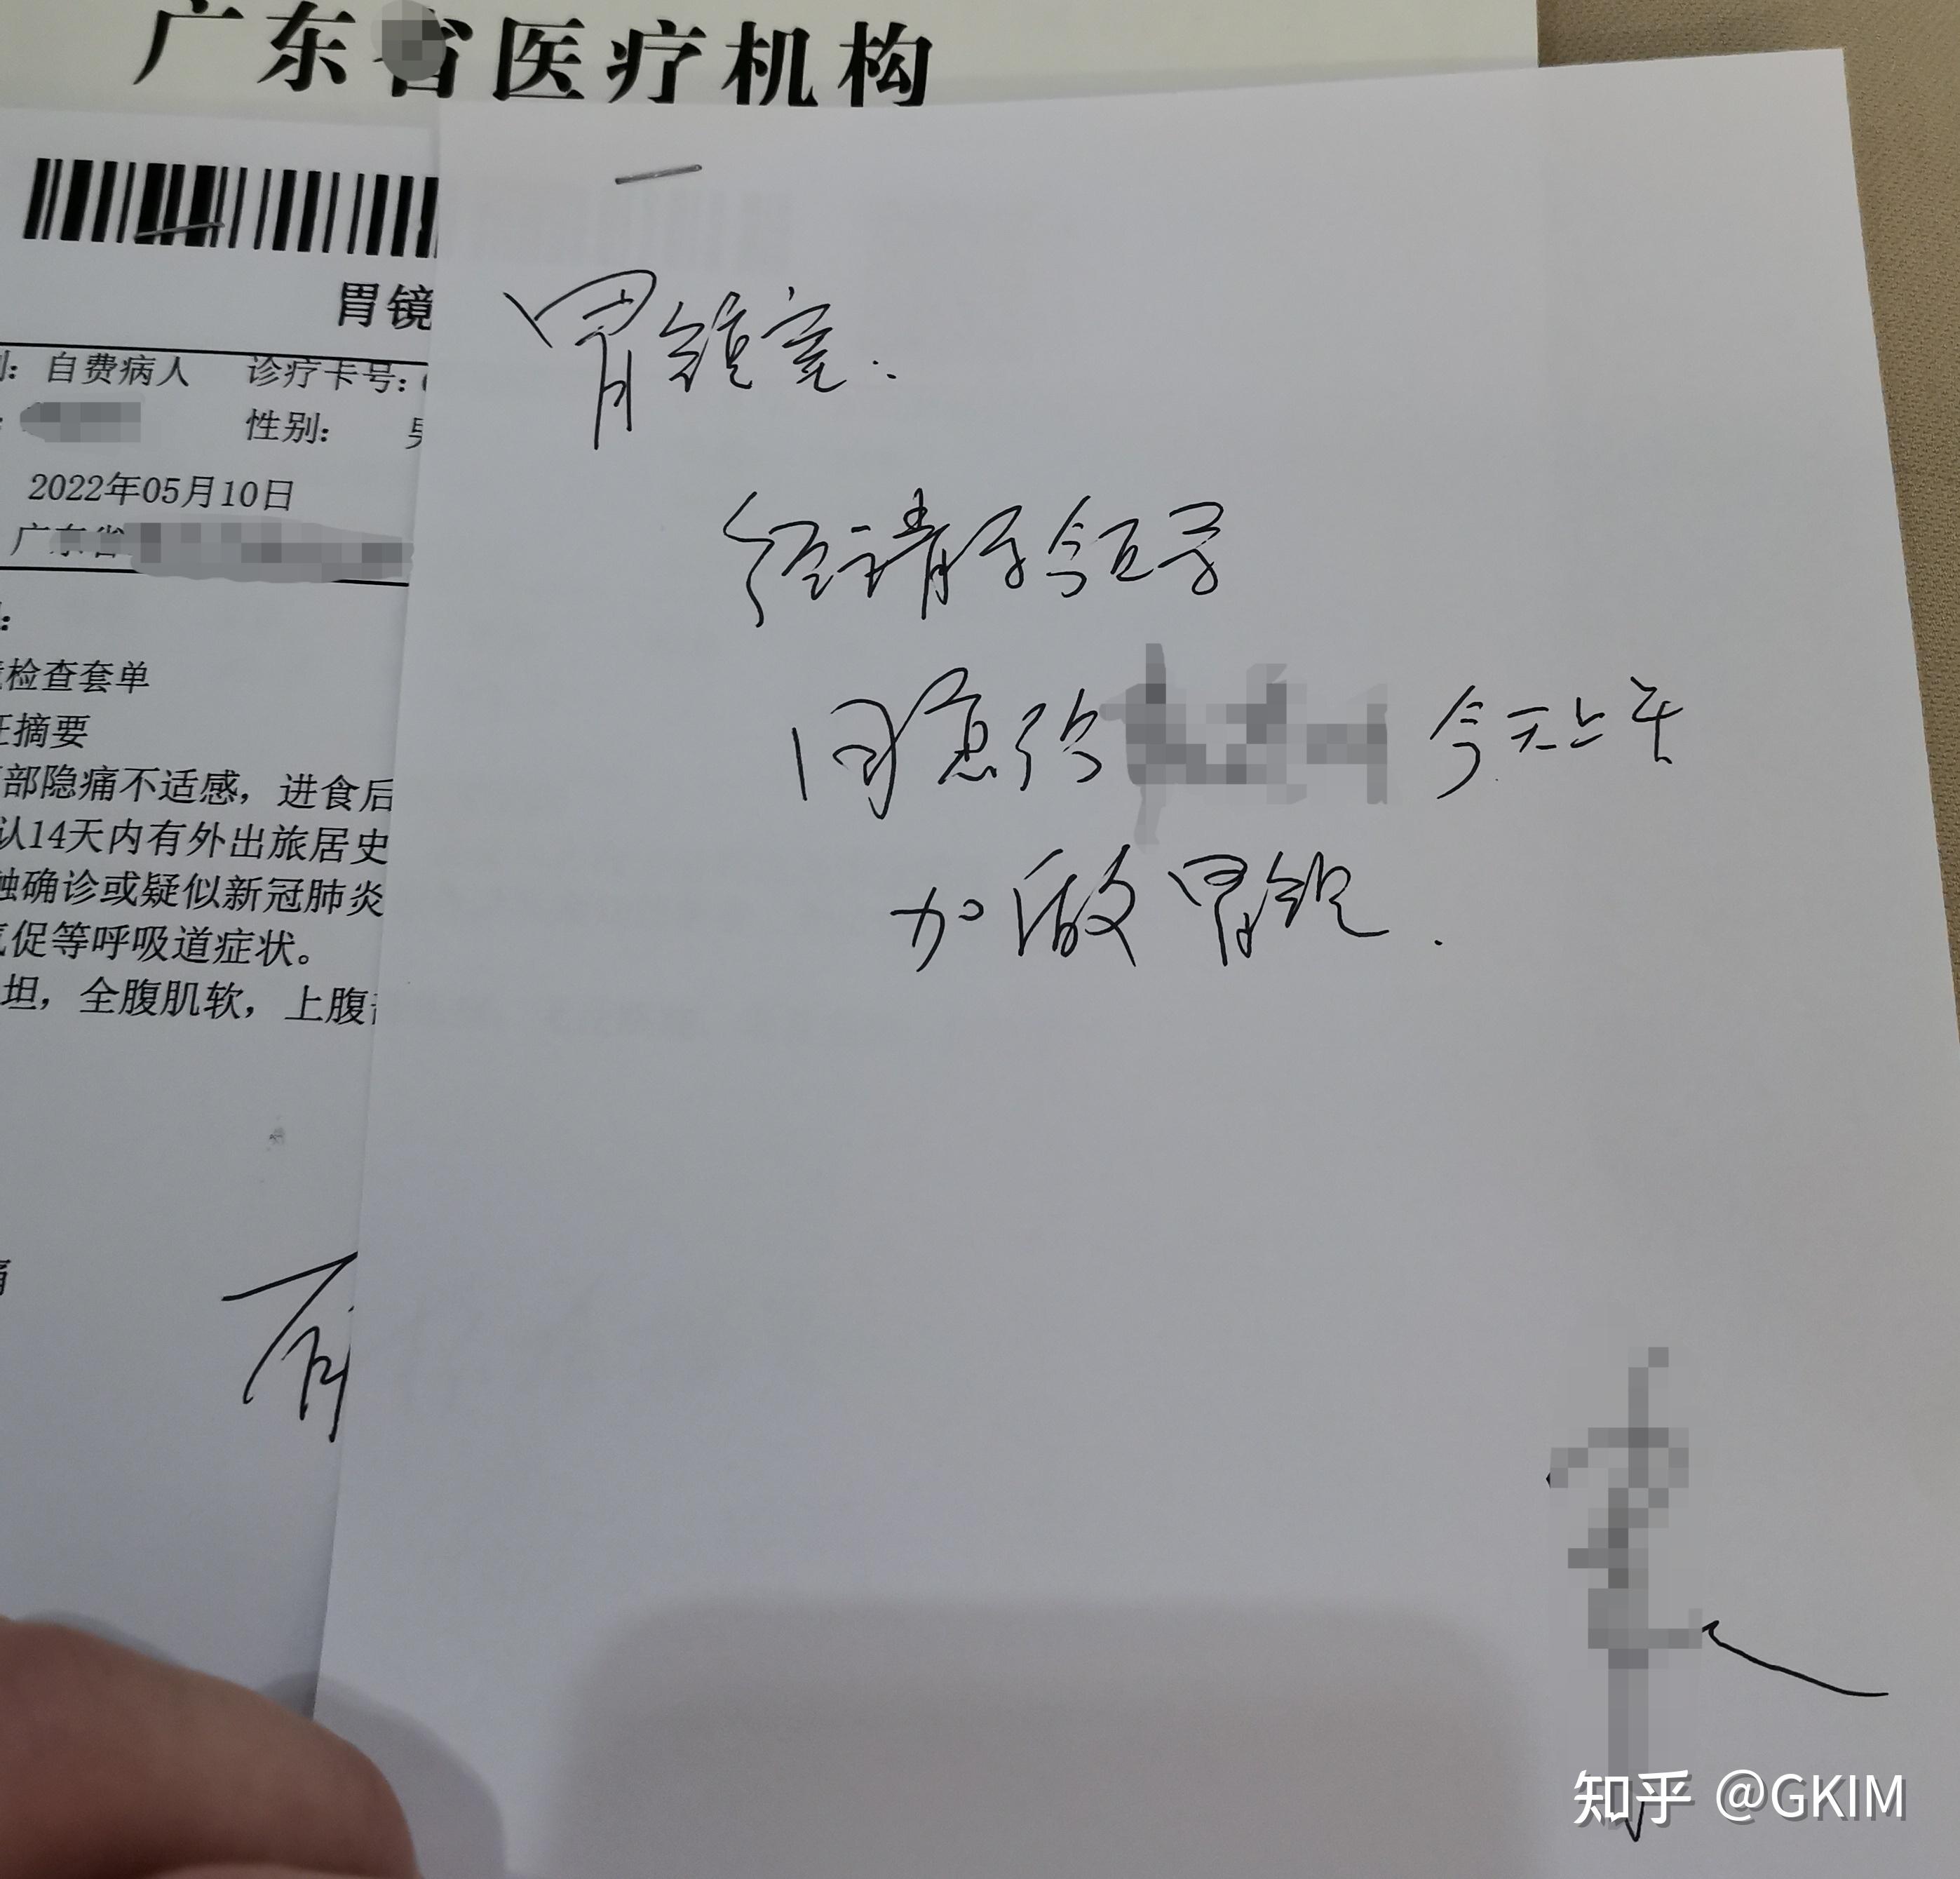 广东省医疗机构
胃镜
：自费病人 诊疗卡号：
性别： 男
2022年05月10日
广东省
：
检查套单
摘要
部隐痛不适感，进食后
认14天内有外出旅居史
触确诊或疑似新冠肺炎
气促等呼吸道症状。
坦，全腹肌软，上腹
胃镜室：
经请示领导
同意给 今天上午
加做胃镜.
知乎 @GKIM